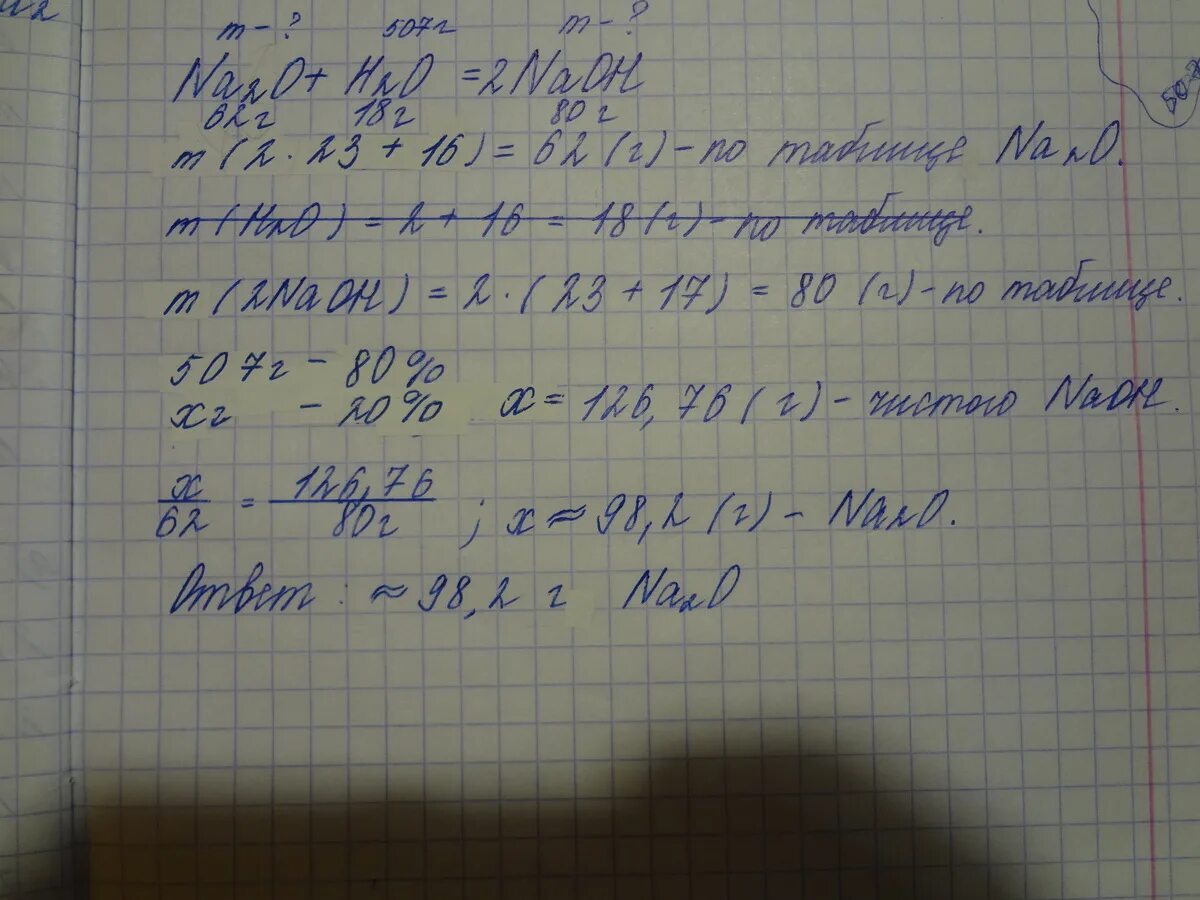 m - ? 507г m - ?
Na₂O + H₂O = 2NaOH
62г 18г 80г
m (2 · 23 + 16) = 62 (г) - по таблице Na₂O.
m (H₂O) = 2 + 16 = 18 (г) - по таблице.
m (2NaOH) = 2 · (23 + 17) = 80 (г) - по таблице.
507г - 80%
xг - 20% x = 126,76 (г) - чистого NaOH.
x/62 = 126,76/80г ; x ≈ 98,2 (г) - Na₂O.
Ответ : ≈ 98,2 г Na₂O